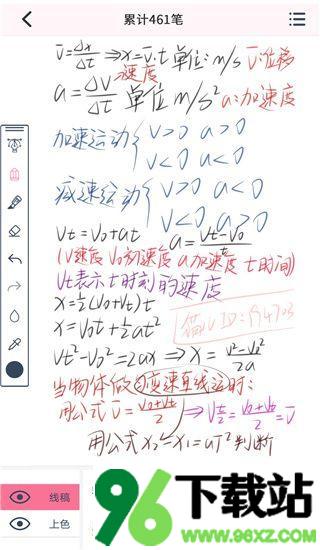 累计461笔
v̄=Δx/Δt ⇒ x=v̄·t 单位: m/s v̄:位移
速度
a=ΔV/Δt 单位 m/s² a:加速度
加速运动{ V>0 a>0
V<0 a<0
减速运动{ V>0 a<0
V<0 a>0
Vt=V0+at a=Vt-V0/t
(V速度 V0初速度 a加速度 t时间)
Vt表示t时刻的速度
x=½(V0+Vt)t
x=V0t+½at²
Vt²-V0²=2ax ⇒ x=V²-V0²/2a
当物体做 变速直线运 时:
用公式 v̄=V0+Vt/2 ⇒ Vt/2=V0+Vt/2=v̄
用公式 x2-x1=aT² 判断
线稿
上色
96下载站
WWW.96XZ.COM